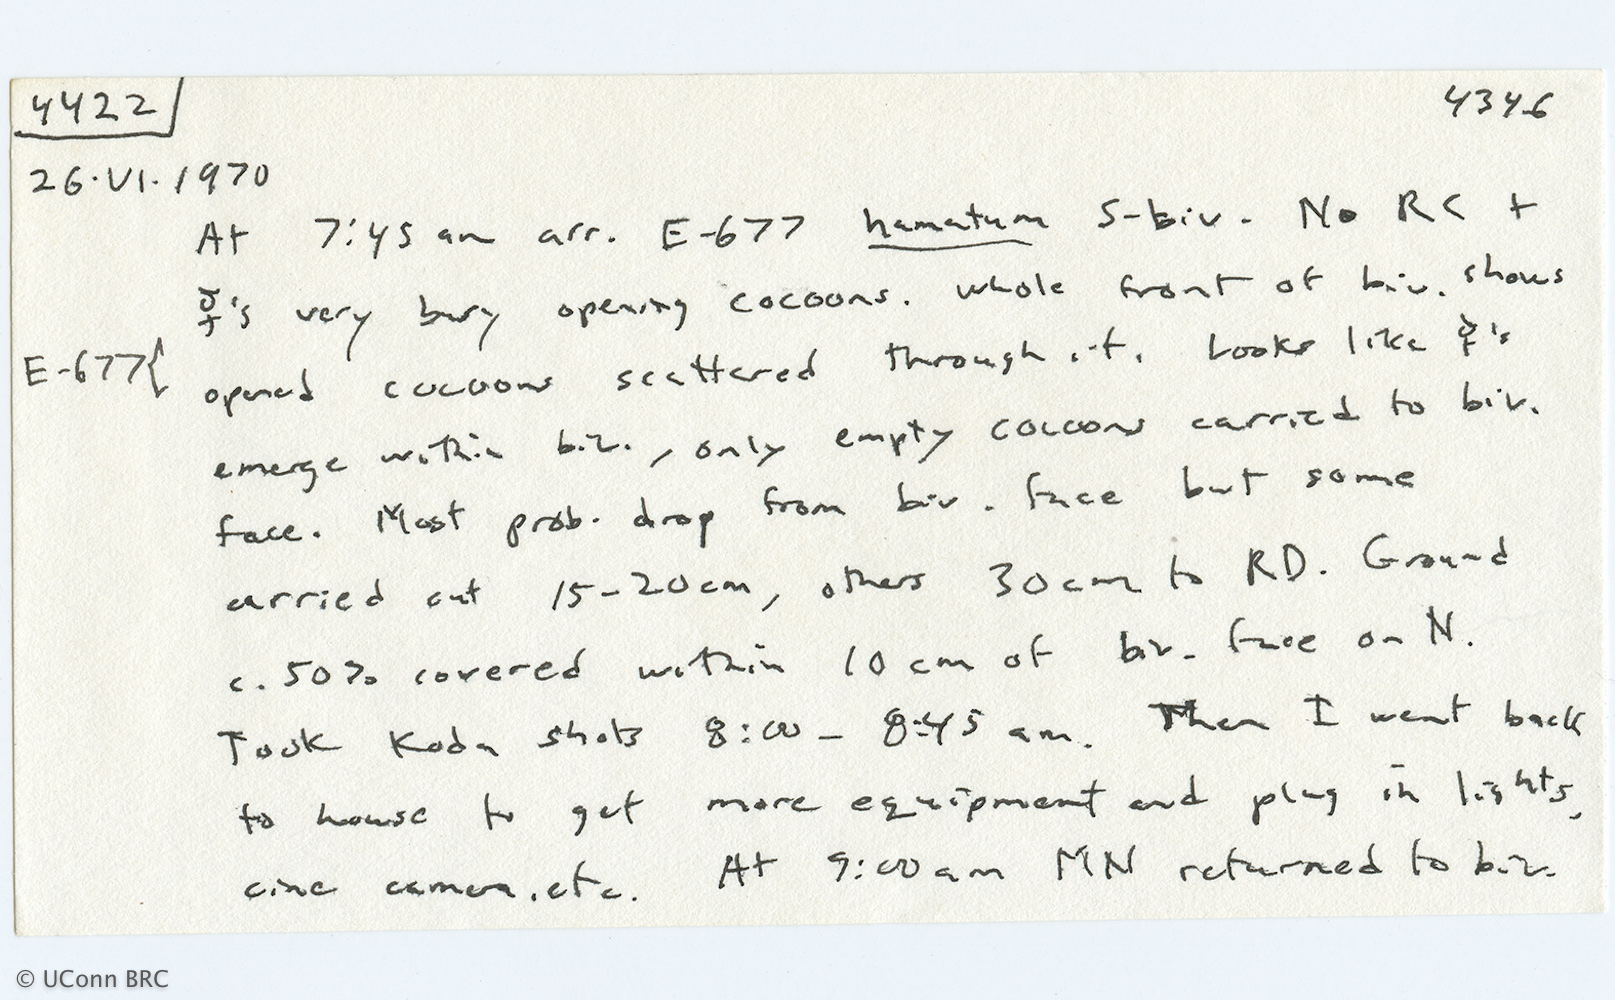 4422
4346
26.VI.1970
At 7:45 am arr. E-677 hamatum S-biv. No RC +
☿'s very busy opening cocoons. Whole front of biv. shows
E-677{
opened cocoons scattered through it. Looks like ☿'s
emerge within biv., only empty cocoons carried to biv.
face. Most prob. drop from biv. face but some
carried out 15-20cm, others 30cm to RD. Ground
c. 50% covered within 10 cm of biv. face on N.
Took Koda shots 8:00 - 8:45 am. Then I went back
to house to get more equipment and plug in lights,
cine camera, etc. At 9:00 am MN returned to biv.
© UConn BRC